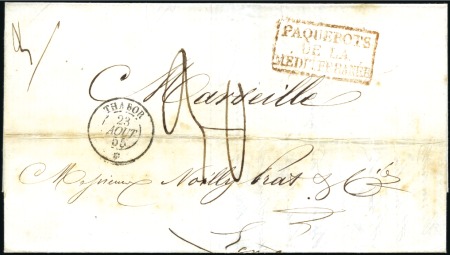 PAQUEBOTS
DE LA
MEDITERRANÉE
Marseille
THABOR
23
AOUT
Messieurs Noilly Prat & Cie